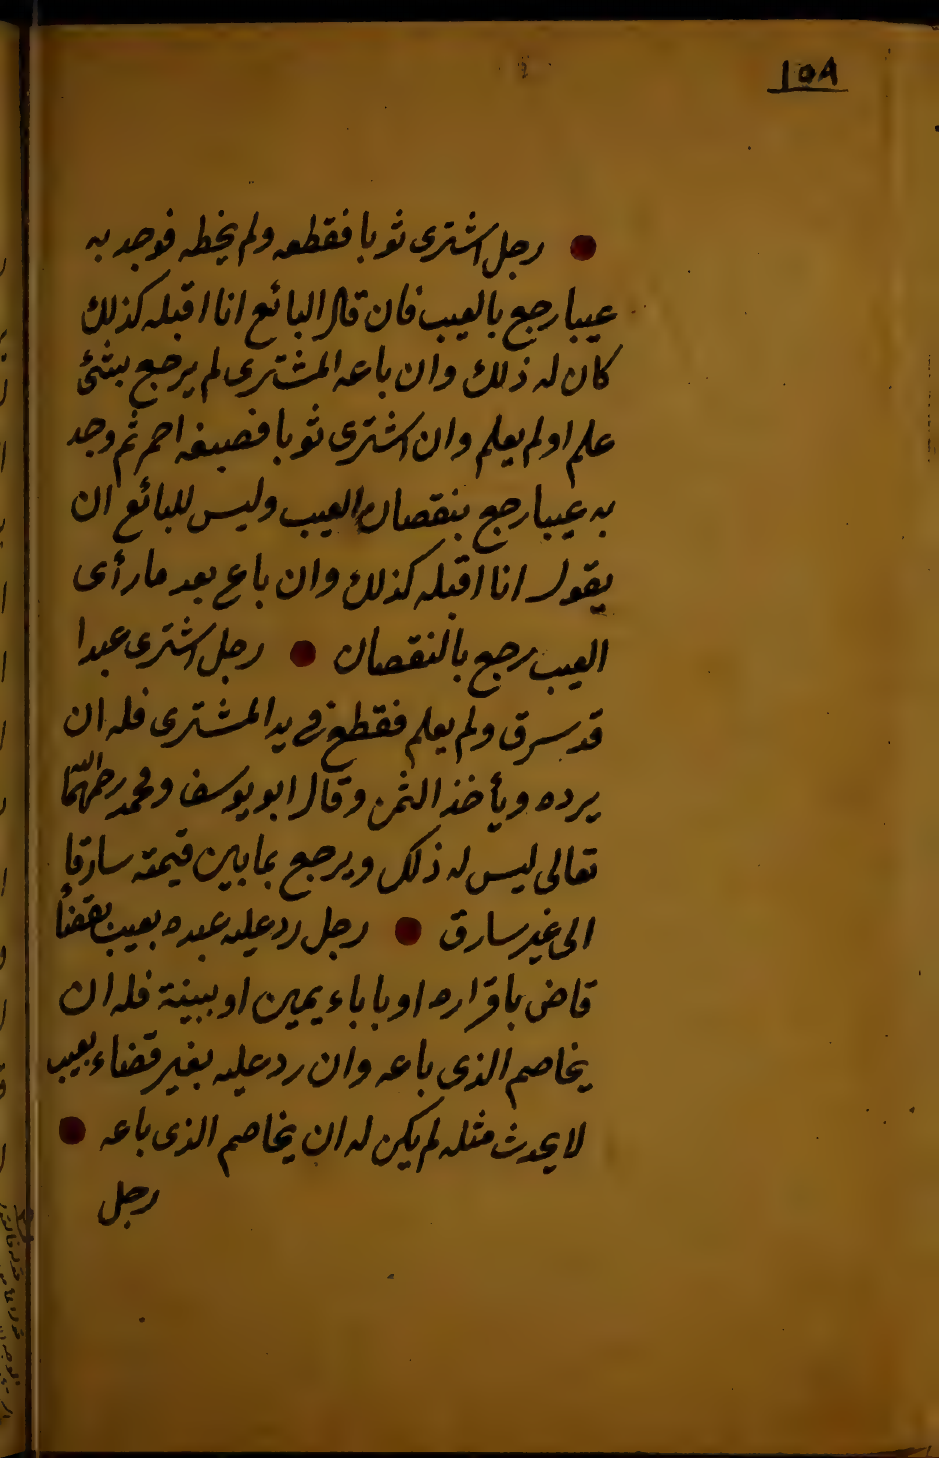 ١٥٨
رجل اشترى ثوبا فقطعه ولم يخطه فوجد به
عيبا رجع بالعيب فان قال البائع انا اقبله كذلك
كان له ذلك وان باعه المشترى لم يرجع بشئ
علم او لم يعلم وان اشترى ثوبا فصبغه احمر ثم وجد
به عيبا رجع بنقصان العيب وليس للبائع ان
يقول انا اقبله كذلك وان باع بعد ما رأى
العيب رجع بالنقصان رجل اشترى عبدا
قد سرق ولم يعلم فقطع فى يد المشترى فله ان
يرده ويأخذ الثمن وقال ابو يوسف ومحمد رحمهما الله
تعالى ليس له ذلك ويرجع بما بين قيمته سارقا
الى غير سارق رجل رد عليه عبده بعيب بقضاء
قاض باقراره او باباء يمين او ببينة فله ان
يخاصم الذى باعه وان رد عليه بغير قضاء بعيب
لا يحدث مثله لم يكن له ان يخاصم الذى باعه
رجل